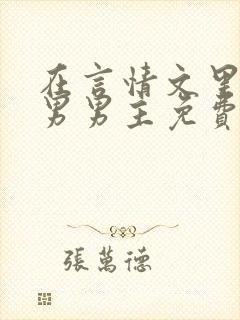 在言情文里
男男主免費
張萬德